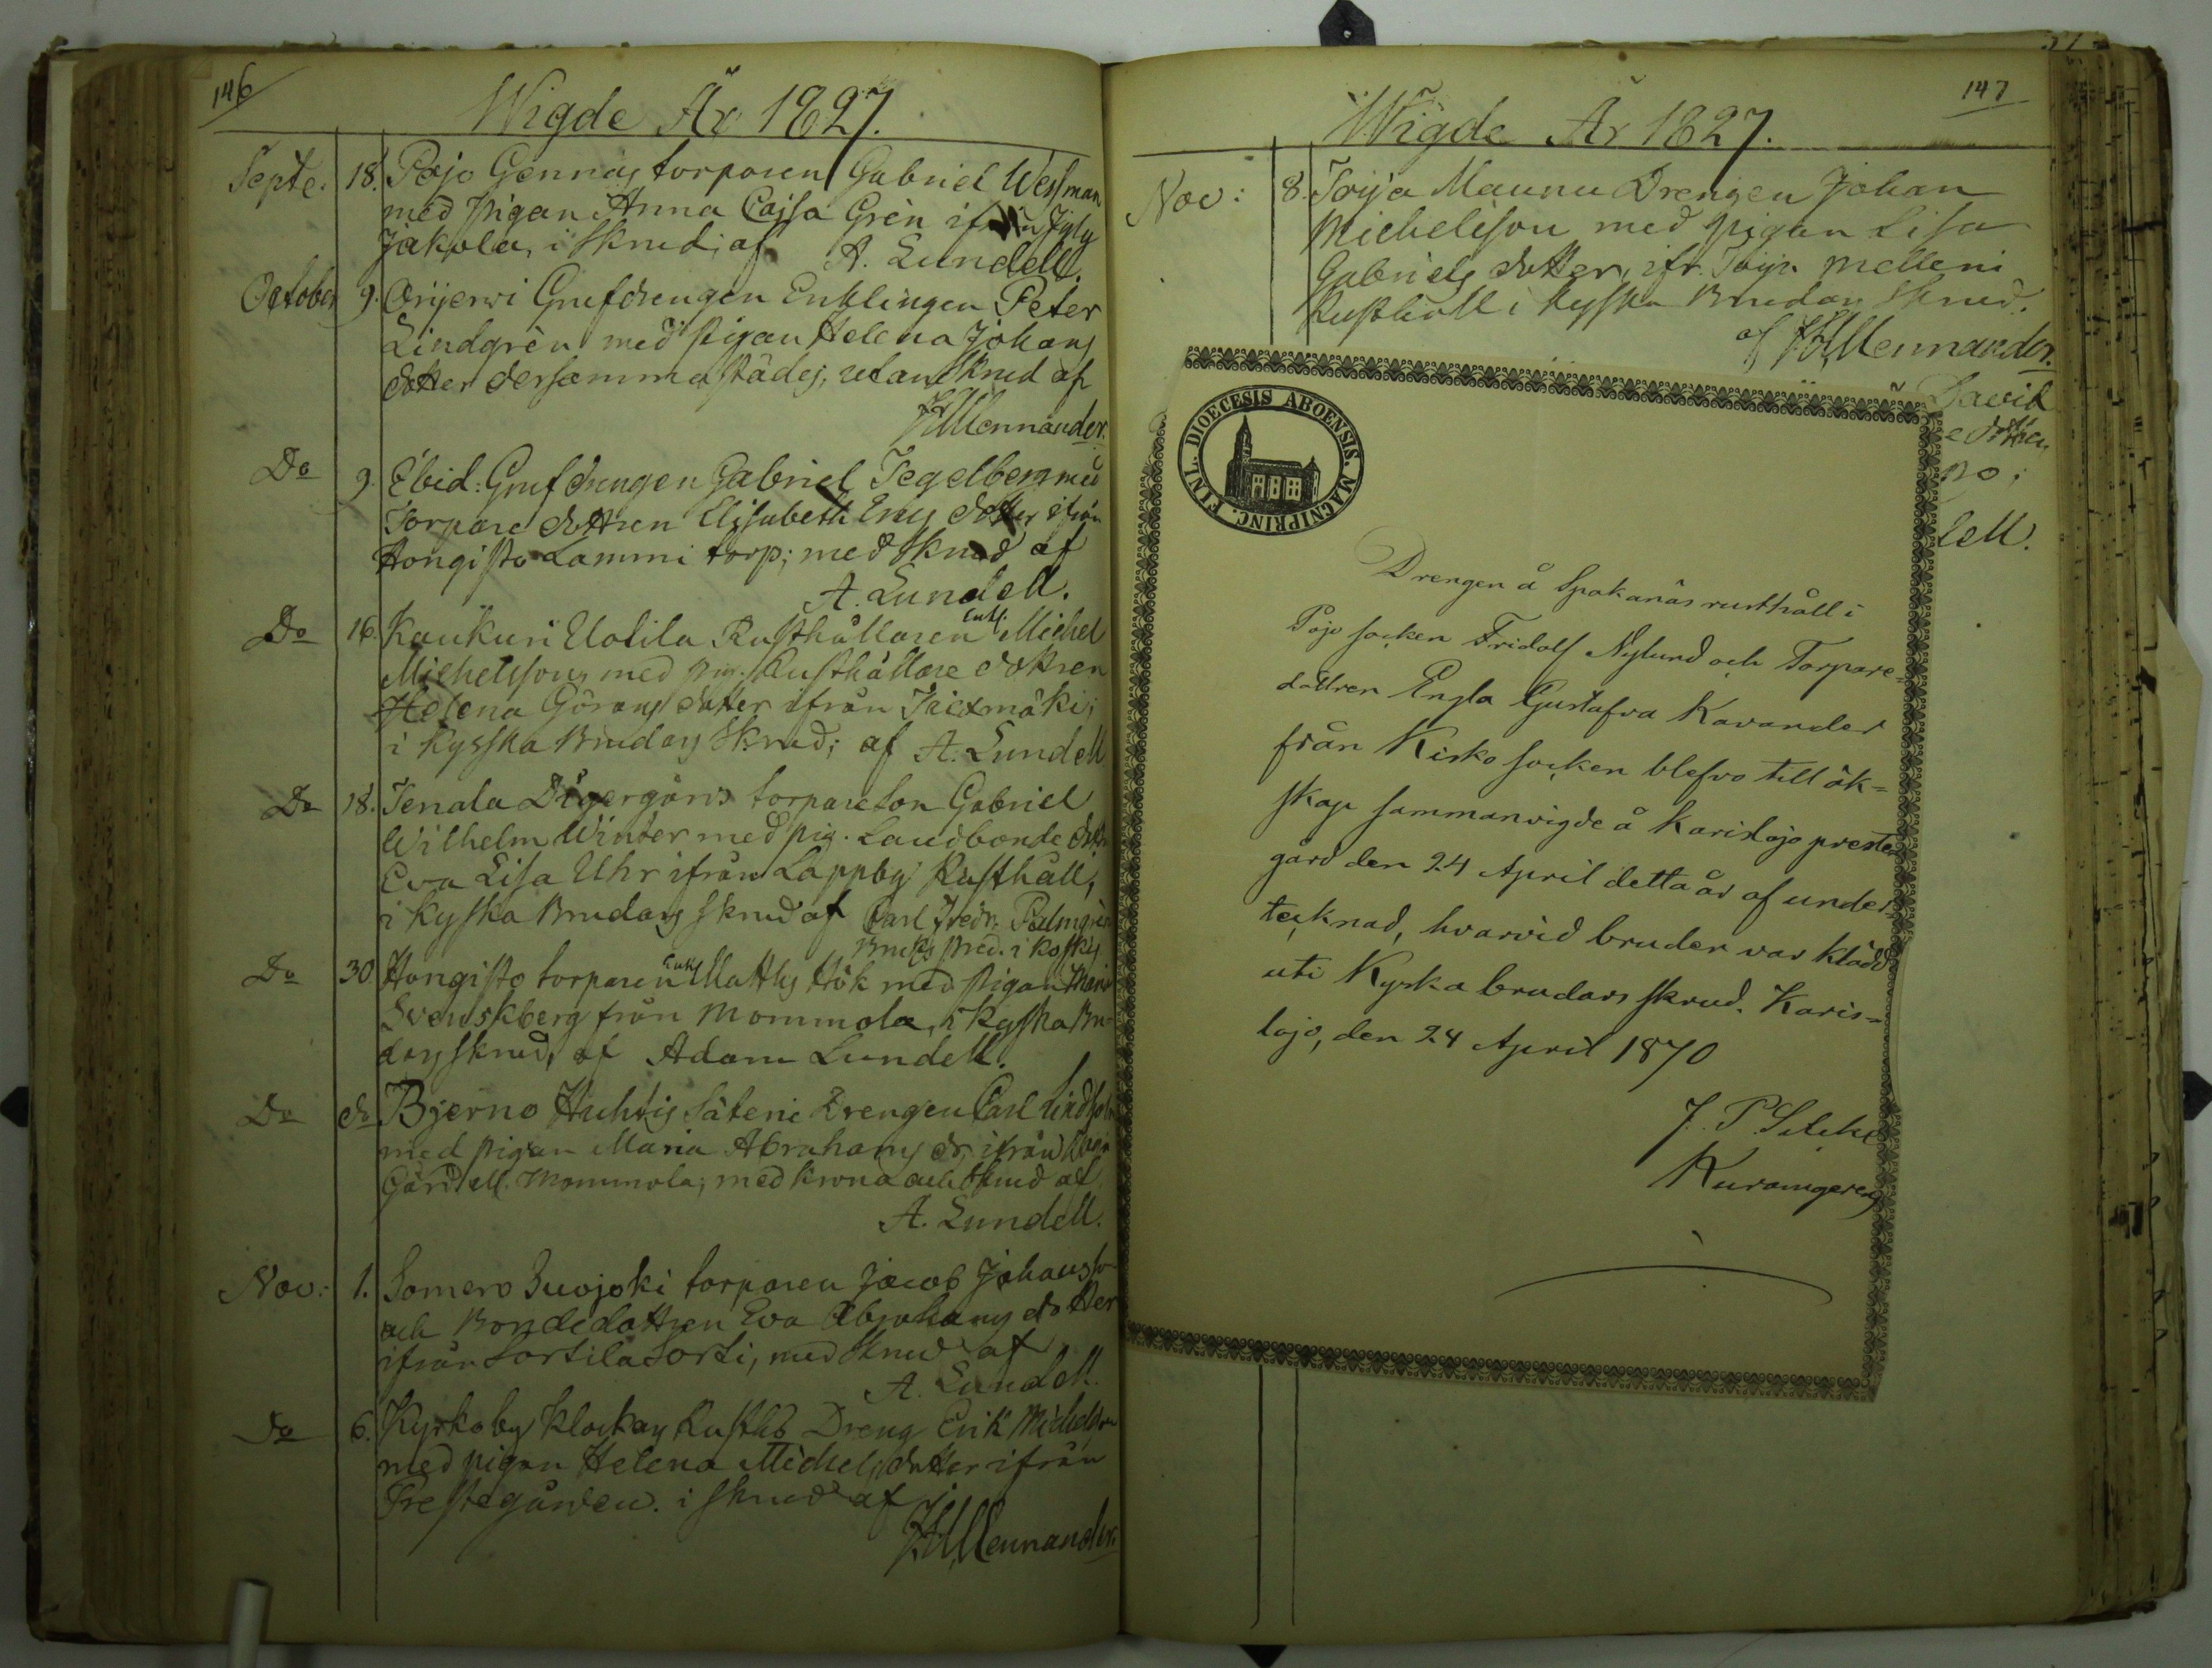 146
Wigde År 1827.
Septe. 18. Pojo Gennäs torparen Gabriel Wessman
med pigan Anna Cajsa Grén ifrån
Jakola, i skrud; af A. Lundell.
October 9. Orijerwi Grufdrengen Enklingen Peter
Lindgrén med pigan Helena Johans
dotter dersammastädes, utan skrud af
Mennander.
Do 9. Ebid: Grufdrengen Gabriel Tegelberg med
Torpare dottren Elisabeth Erics dotter ifrån
Hongisto Lammi torp; med skrud af
A. Lundell.
Do 16. Kaukuri Uotila Rusthållaren Enkl. Michel
Michelsson med pig. Rusthållare dottren
Helena Görans dotter ifrån
i Kysska Brudars skrud; af A. Lundell
Do 18. Tenala torpareson Gabriel
Wilhelm Winter med pig. Landbonde dottr
Eva Lisa Uhr ifrån Lappby Rusthåll,
i Kyska Brudars skrud af Carl Fredr. Palmgrén
Bruks Pred. i Koskis
Do 30. Hongisto torparen Enkl Matths Hök med pigan Maria
Svenskberg från Mommola, i Kyska Bru-
dars skrud, af Adam Lundell.
Do do Bjerno Huhtis Säteri Drengen Carl Lindholm
med pigan Maria Abrahams dr ifrån
Mommola; med krona och skrud af
A. Lundell.
Nov: 1. Somero Suojoki torparen Jacob Johansson
och Bondedottren Eva Abrahams dotter
ifrån Sortila Sorti, med skrud af
A. Lundell.
Do 6. Kyrkoby Klockars Rusths Dreng Erik Michelsson
med pigan Helena Michels dotter ifrån
Prestegården. i skrud af
Mennander.
147
Wigde År 1827.
Nov: 8. Toija Maunu Drengen Johan
Michelsson med pigan Lisa
Gabriels dotter, ifr. Toija Melleri
Rusthåll i Kysska Brudars skrud.
af Mennander.
David
no;
dell.
FINL. DIOECESIS ABOENSIS. MAGNIPRINC.
Drengen å Spakanäs rusthåll i
Pojo socken Fridolf Nylund och Torpare-
dottren Engla Gustafva Kavander
från Kisko socken blefvo till äk-
skap sammanvigde å Karislojo preste-
gård den 24 April detta år af under-
tecknad, hvarvid bruden var klädd
uti Kyska brudars skrud. Karis-
lojo, den 24 April 1870
J. P.